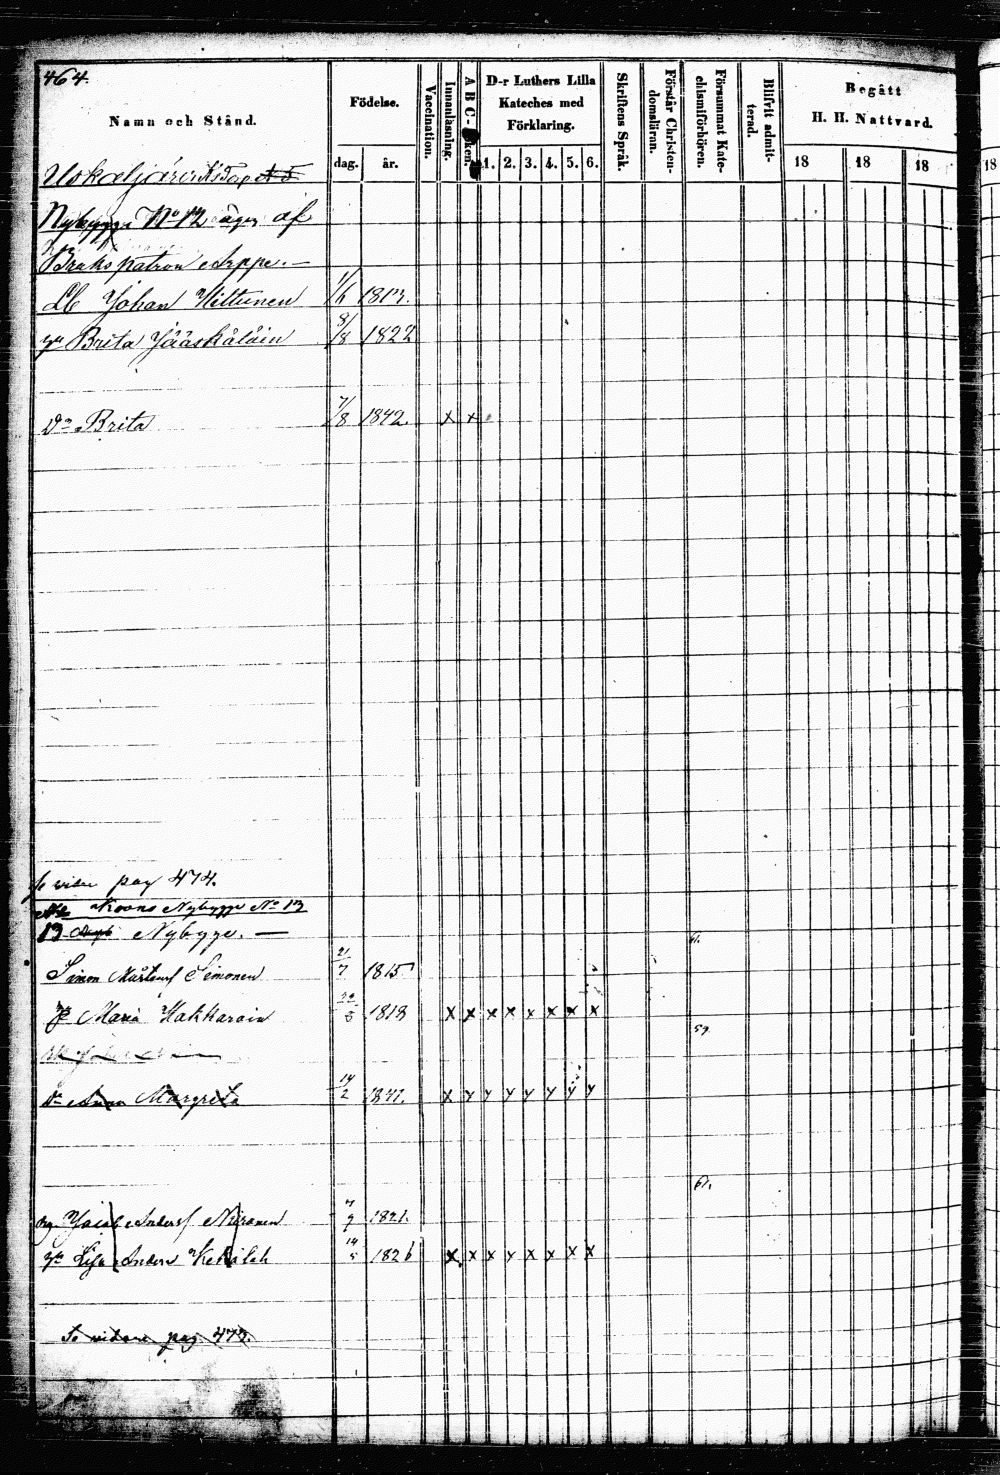 464.
Namn och Stånd.
Födelse.
dag.
år.
Vaccination.
Innanläsning.
A B C-
D-r Luthers Lilla
Kateches med
Förklaring.
1. 2. 3. 4. 5. 6.
Skriftens Språk.
Förstår Christen-
domsläran.
Försummat Kate-
chismiförhören.
Blifvit admit-
terad.
Begått
H. H. Nattvard.
18 18 18 18
Nybygge No 12 äges af
Bruks patron Arppe. —
Lb Johan Hiltunen 1/6 1813.
hu Brita Jääskäläin 8/8 1822
Dr Brita 7/8 1842. x x
se vidare pag 474.
Kroono Nybygge No 13
13 Nybygge. — 61.
Simon Mårtensf Simonen 21/7 1815
Maria Hakkarain 1818 x x x x x x x x
59.
Dr Anna Margreta 14/2 1841. x y y y y y y y
61.
Jacob Andersf 7/9 1821.
hu Lisa Anders 14/5 1826 x x x x x x x x
Se vidare pag 473.